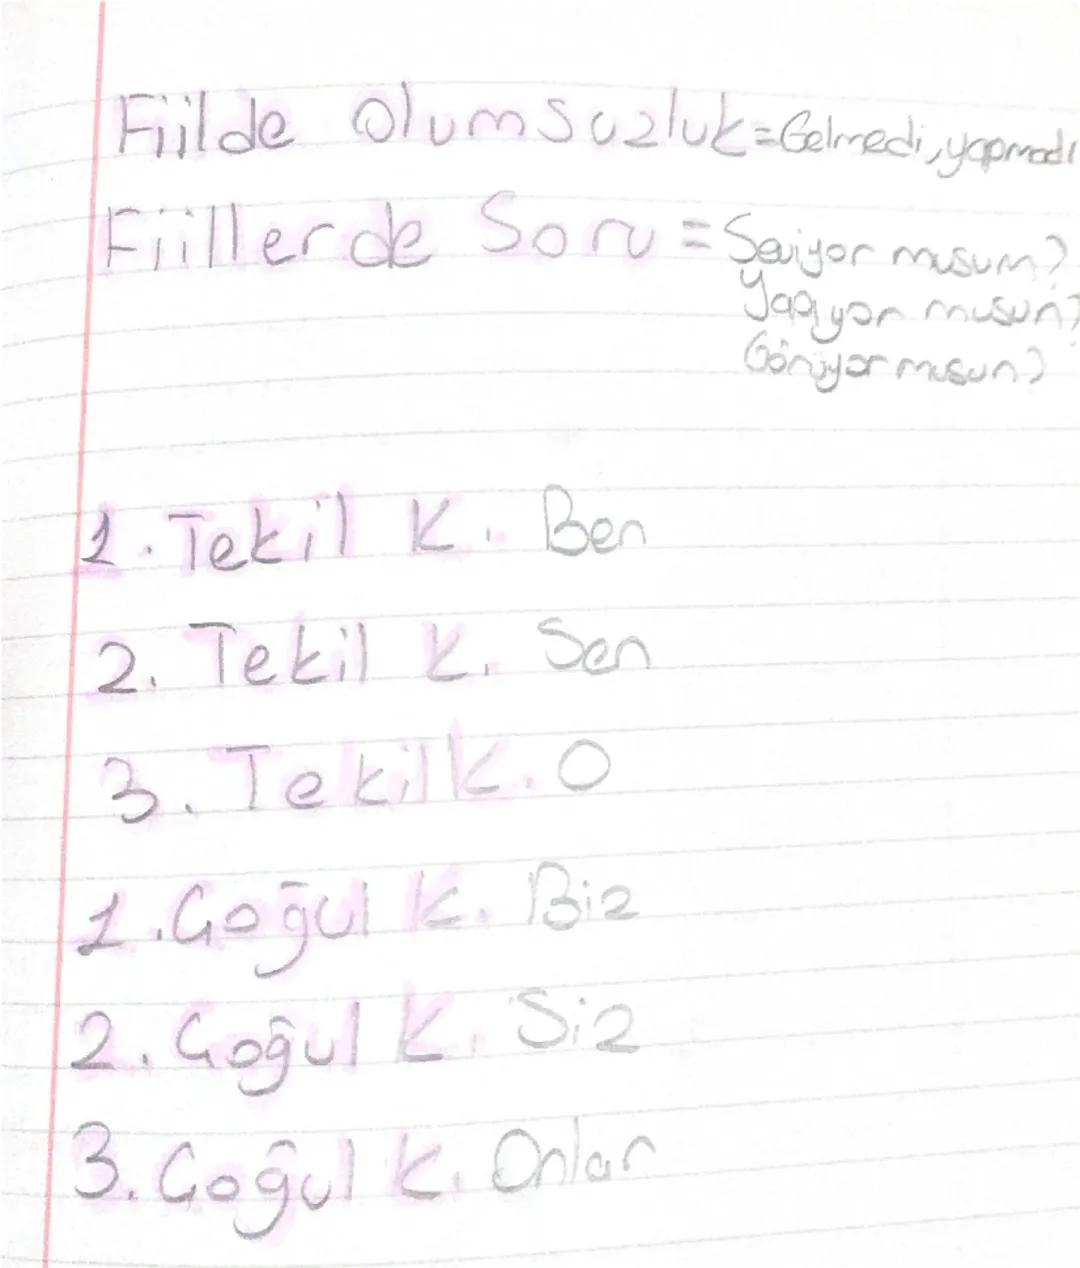 Fiilde Olumsuzluk=Gelmedi,yapmadı
Fiillerde Soru = Seviyor musum?
Yapıyor musun?
Görüyor musun?
1. Tekil K. Ben
2. Tekil K. Sen
3. Tekil K. O
1. Çoğul K. Biz
2. Çoğul K. Siz
3. Çoğul K. Onlar